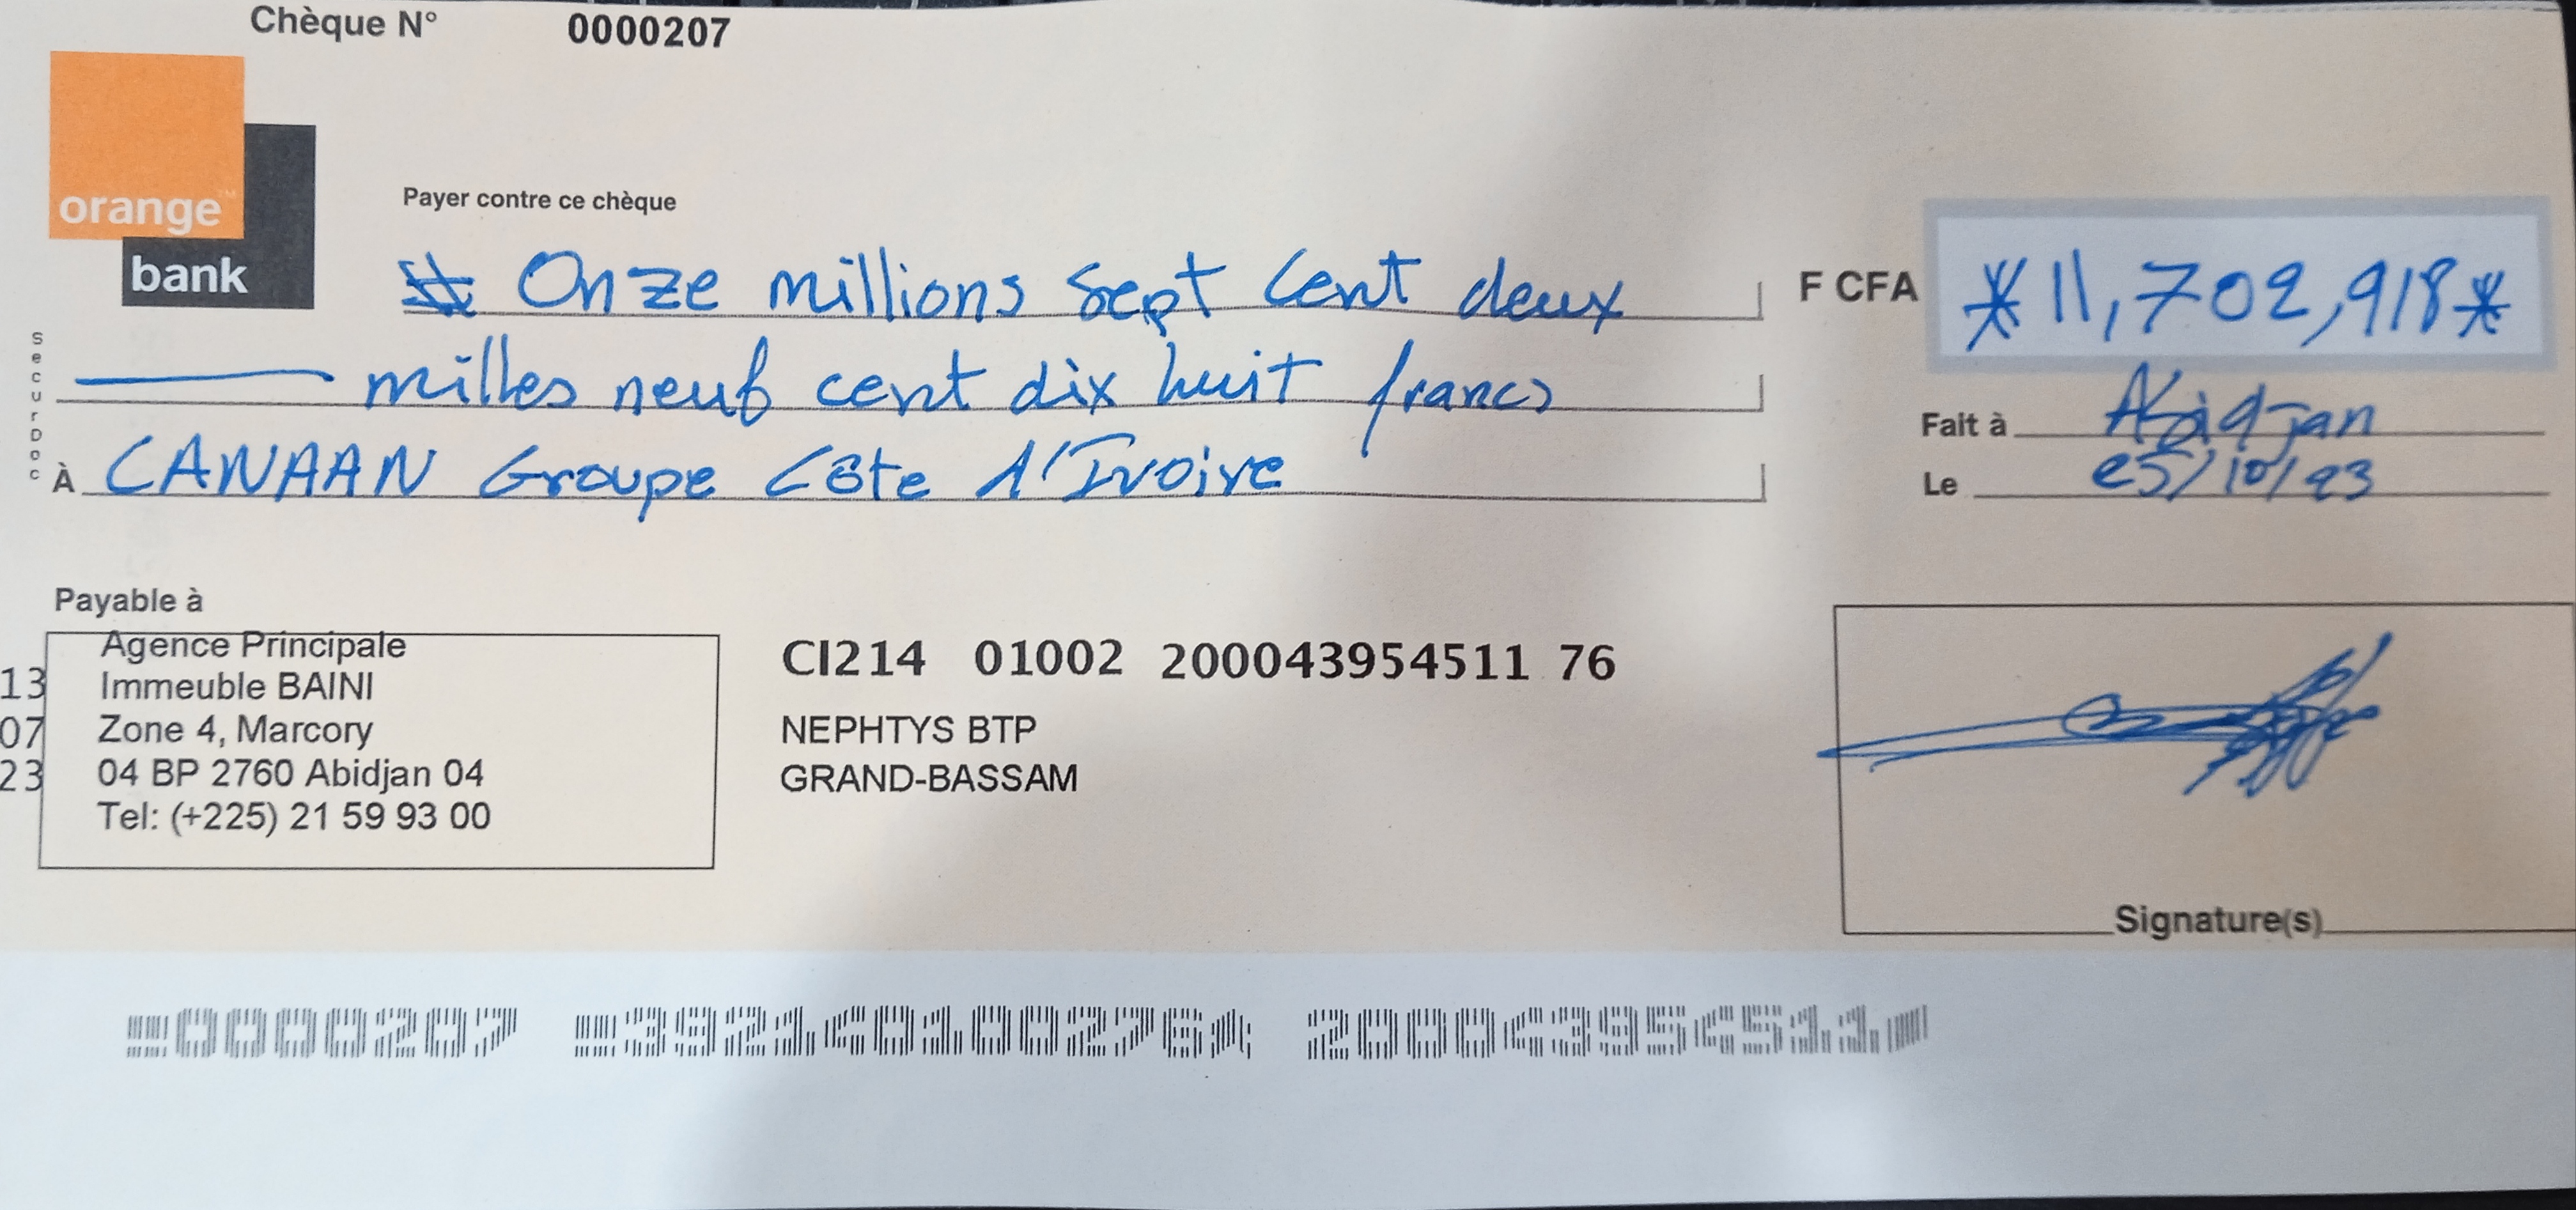 Chèque N° 0000207
orange™
bank
Payer contre ce chèque
Onze millions sept cent deux
milles neuf cent dix huit francs
À CANAAN Groupe Côte d'Ivoire
F CFA *11,702,918*
Fait à Abidjan
Le 25/10/23
SecurDoc
Payable à
Agence Principale
Immeuble BAINI
Zone 4, Marcory
04 BP 2760 Abidjan 04
Tel: (+225) 21 59 93 00
13
07
23
CI214 01002 200043954511 76
NEPHTYS BTP
GRAND-BASSAM
Signature(s)
0000207 392140100276 200043954511